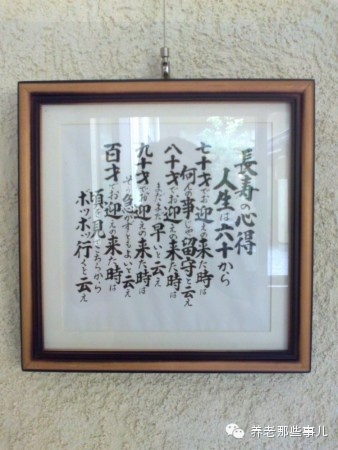 長寿の心得
人生は六十から
七十才でお迎えの来た時は
何事留守と云え
八十才でお迎えの来た時は
まだまだ早いと云え
九十才でお迎えの来た時は
そう急がずともよいと云え
百才でお迎えの来た時は
頃を見てこちらから
ボツボツ行くと云え
养老那些事儿